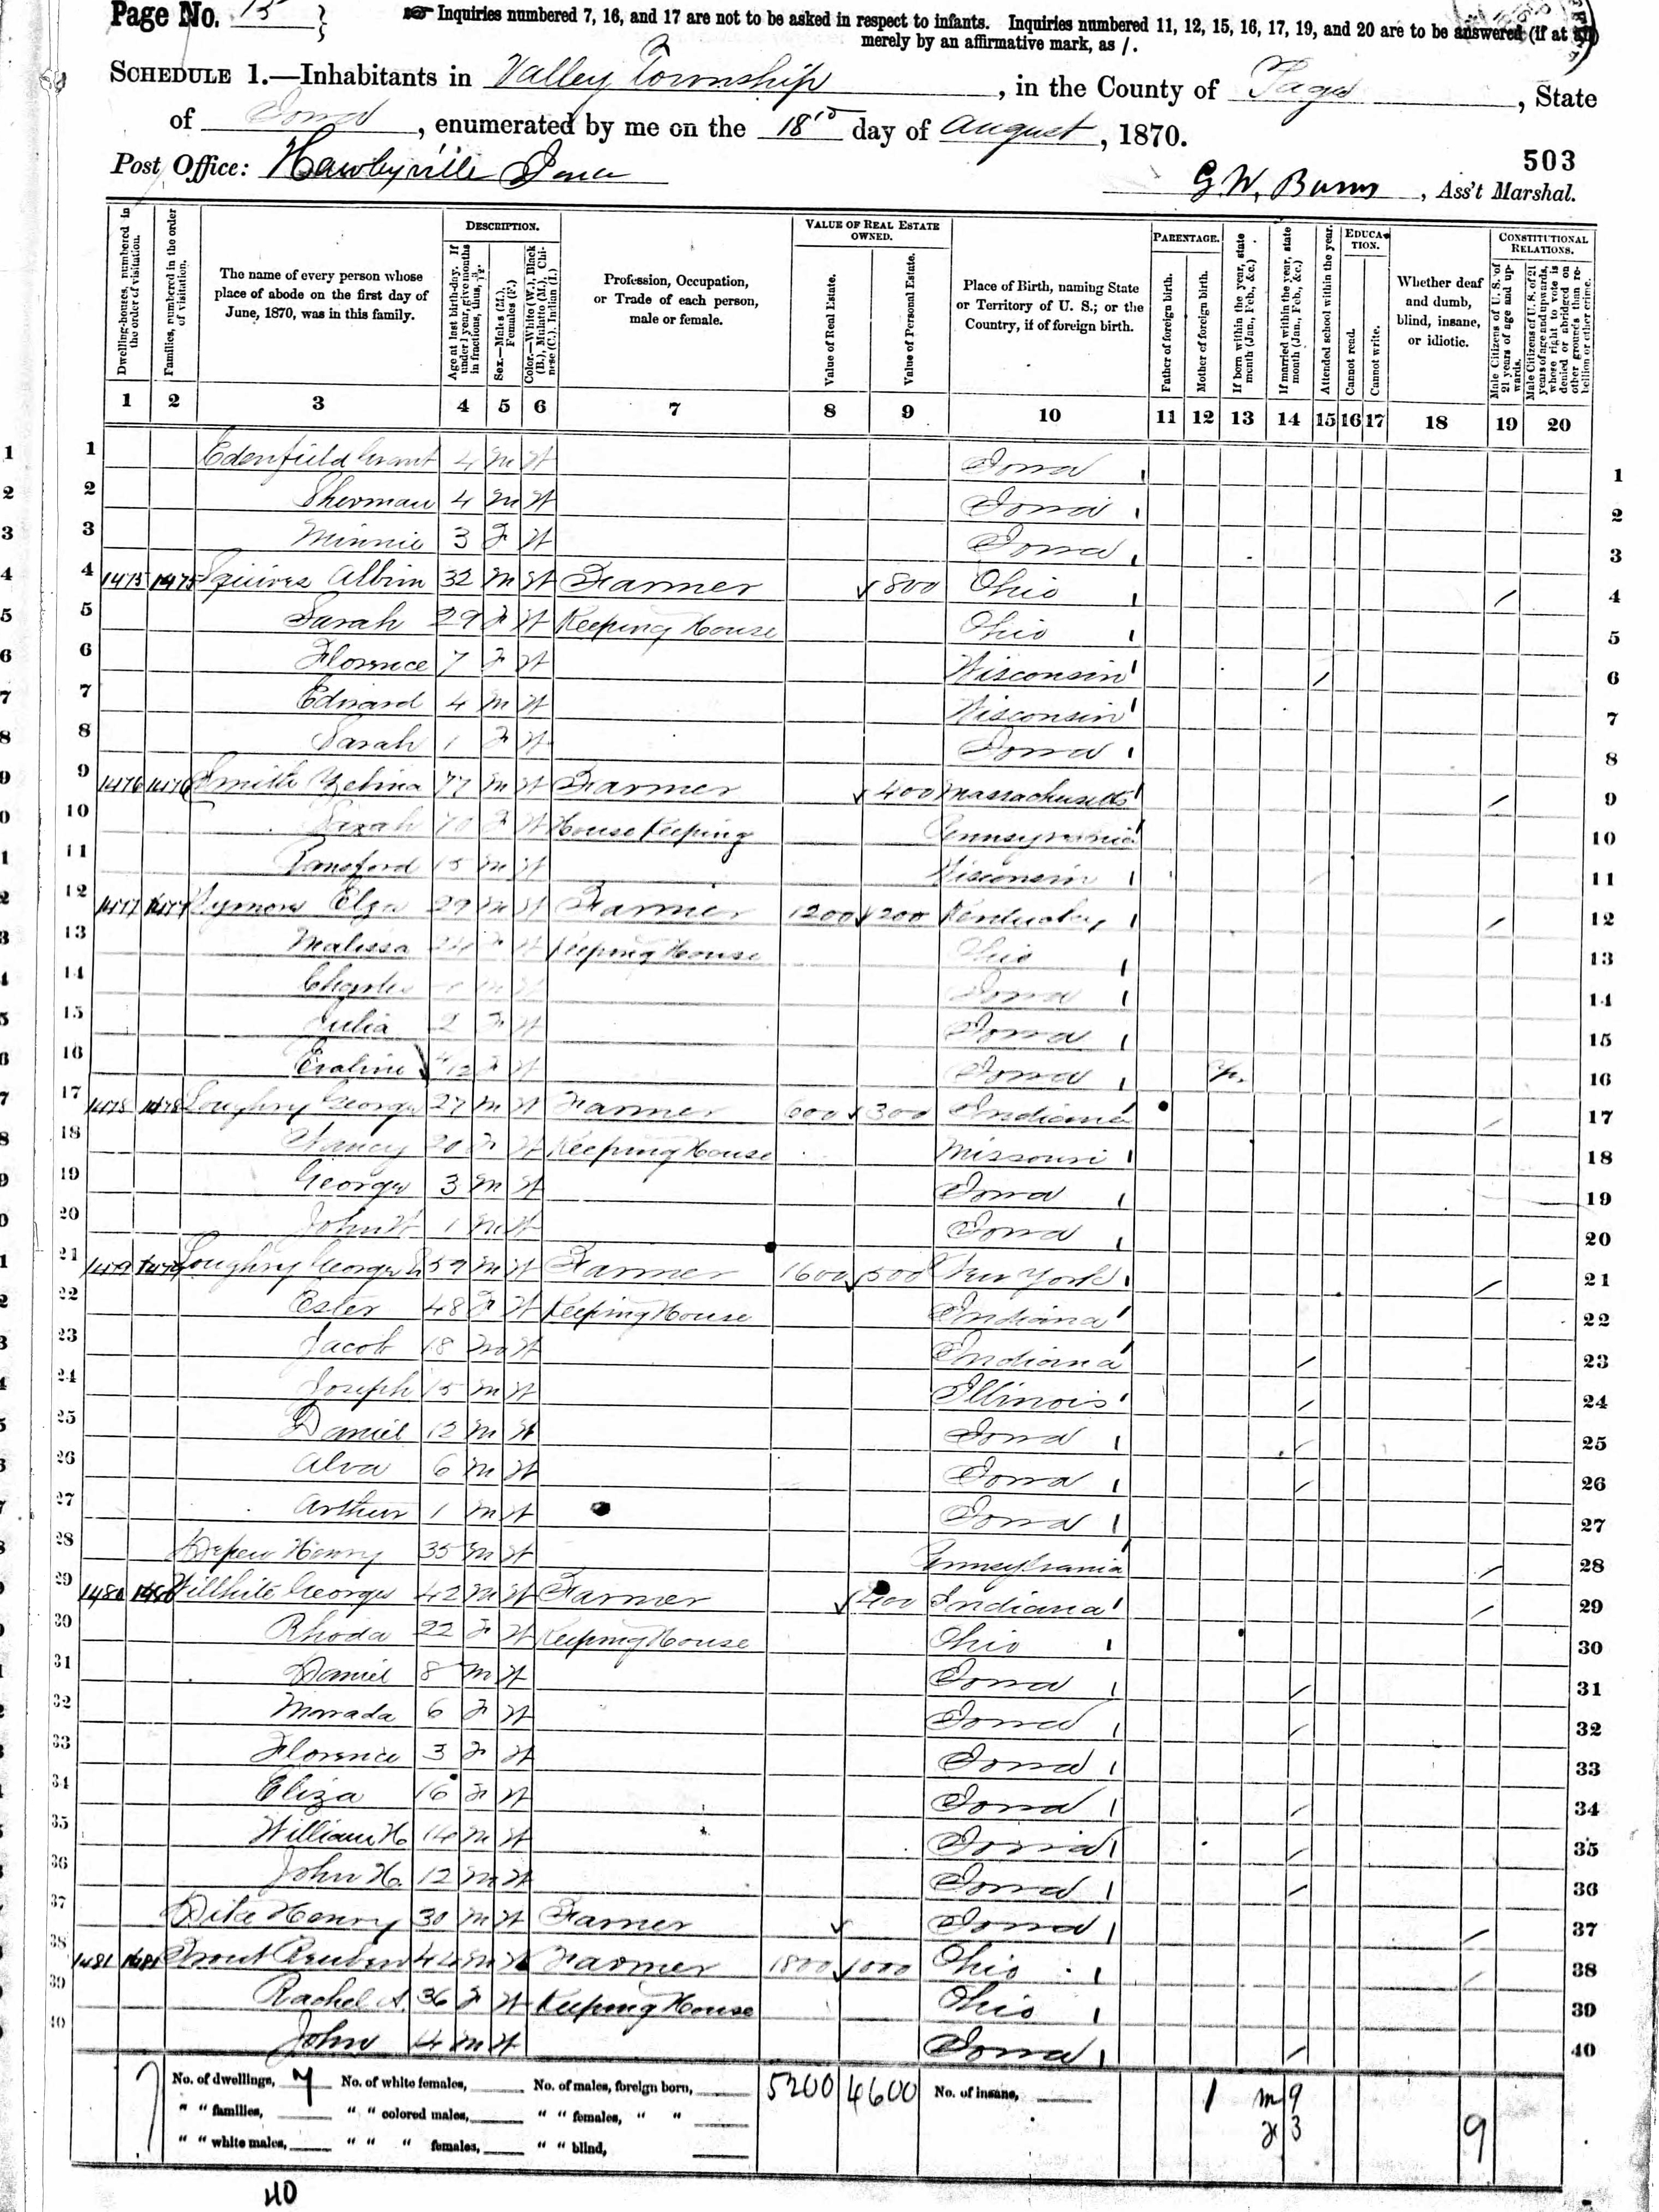 Page No. 15
☞ Inquiries numbered 7, 16, and 17 are not to be asked in respect to infants. Inquiries numbered 11, 12, 15, 16, 17, 19, and 20 are to be answered (if at all)
merely by an affirmative mark, as /.
SCHEDULE 1.—Inhabitants in Valley Township, in the County of Page, State
of Iowa, enumerated by me on the 18th day of August, 1870.
503
Post Office: Hawleyville Iowa
G W, Burns, Ass't Marshal.
Dwelling-houses, numbered in the order of visitation.
Families, numbered in the order of visitation.
The name of every person whose place of abode on the first day of June, 1870, was in this family.
DESCRIPTION.
Age at last birth-day. If under 1 year, give months in fractions, thus, 3/12.
Sex.—Males (M.), Females (F.)
Color.—White (W.), Black (B.), Mulatto (M.), Chinese (C.), Indian (I.)
Profession, Occupation, or Trade of each person, male or female.
VALUE OF REAL ESTATE OWNED.
Value of Real Estate.
Value of Personal Estate.
Place of Birth, naming State or Territory of U. S.; or the Country, if of foreign birth.
PARENTAGE.
Father of foreign birth.
Mother of foreign birth.
If born within the year, state month (Jan., Feb., &c.)
If married within the year, state month (Jan., Feb., &c.)
Attended school within the year.
EDUCATION.
Cannot read.
Cannot write.
Whether deaf and dumb, blind, insane, or idiotic.
CONSTITUTIONAL RELATIONS.
Male Citizens of U. S. of 21 years of age and upwards.
Male Citizens of U. S. of 21 years of age and upwards, where right to vote is denied or abridged on other grounds than rebellion or other crime.
1 2 3 4 5 6 7 8 9 10 11 12 13 14 15 16 17 18 19 20
1 Edenfield Grant 4 M W Iowa 1
2 Sherman 4 M W Iowa 2
3 Minnie 3 F W Iowa 3
4 1475 1475 Squires Albim 32 M W Farmer 800 Ohio / 4
5 Sarah 29 F W Keeping House Ohio 5
6 Florence 7 F W Wisconsin / 6
7 Edward 4 M W Wisconsin 7
8 Sarah 1 F W Iowa 8
9 1476 1476 Smith Zelina 77 M W Farmer 400 Massachusetts / 9
10 Sarah 70 F W House Keeping Pennsylvania 10
11 15 M W Wisconsin / 11
12 1477 1477 Elza 29 M W Farmer 1200 200 Kentucky / 12
13 Malissa 24 F W Keeping House Ohio 13
14 Charles M W Iowa 14
15 Julia 2 F W Iowa 15
16 Evaline F W Iowa 16
17 1478 1478 Loughry George 27 M W Farmer 600 300 Indiana / 17
18 Nancy 20 F W Keeping House Missouri 18
19 George 3 M W Iowa 19
20 John W 1 M W Iowa 20
21 1479 1479 Loughry George 59 M W Farmer 1600 500 New York / 21
22 Ester 48 F W Keeping House Indiana 22
23 Jacob 18 M W Indiana / 23
24 Joseph 15 M W Illinois / 24
25 Daniel 12 M W Iowa / 25
26 Alva 6 M W Iowa / 26
27 Arthur 1 M W Iowa 27
28 Depew Henry 35 M W Pennsylvania / 28
29 1480 1480 Willhite George 42 M W Farmer 400 Indiana / 29
30 Rhoda 22 F W Keeping House Ohio 30
31 Daniel 8 M W Iowa / 31
32 Marada 6 F W Iowa / 32
33 Florence 3 F W Iowa 33
34 Eliza 16 F W Iowa / 34
35 William H 14 M W Iowa / 35
36 John H. 12 M W Iowa / 36
37 Dike Henry 30 M W Farmer Iowa / 37
38 1481 1481 Trout Reuben 44 M W Farmer 1800 1000 Ohio / 38
39 Rachel A. 36 F W Keeping House Ohio 39
40 John 14 M W Iowa / 40
No. of dwellings, 7 No. of white females, No. of males, foreign born, 5200 4600 No. of insane, 1 M 9
" " families, " " colored males, " " females, " " F 3 9
" " white males, " " " females, " " blind,
40